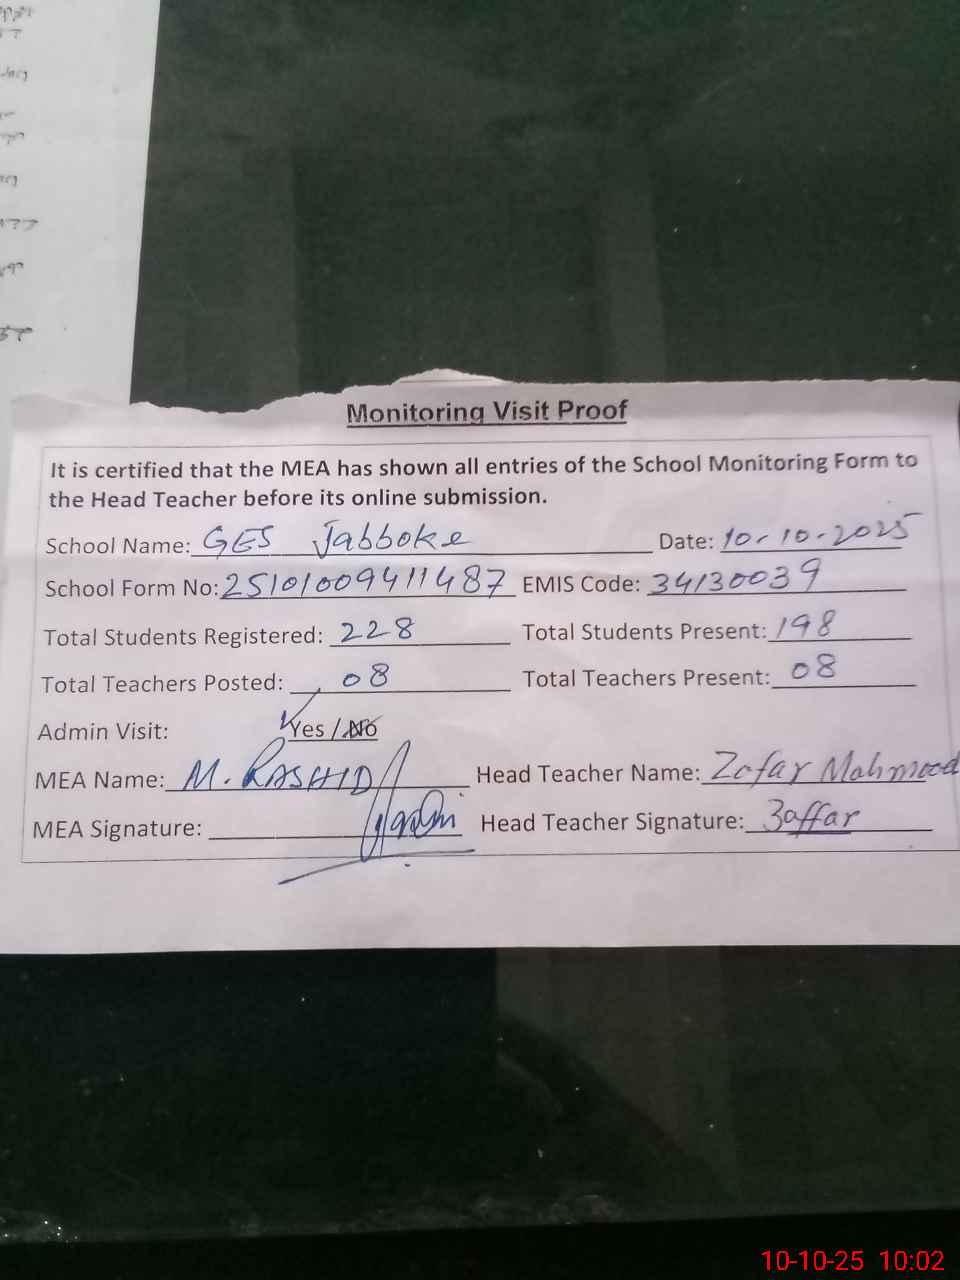 Monitoring Visit Proof
It is certified that the MEA has shown all entries of the School Monitoring Form to
the Head Teacher before its online submission.
School Name: GES Jabboke Date: 10-10-2025
School Form No: 25101009411487 EMIS Code: 34130039
Total Students Registered: 228 Total Students Present: 198
Total Teachers Posted: 08 Total Teachers Present: 08
Admin Visit: Yes / No
MEA Name: M. RASHID Head Teacher Name: Zafar Mahmood
MEA Signature: Head Teacher Signature: Zaffar
10-10-25 10:02